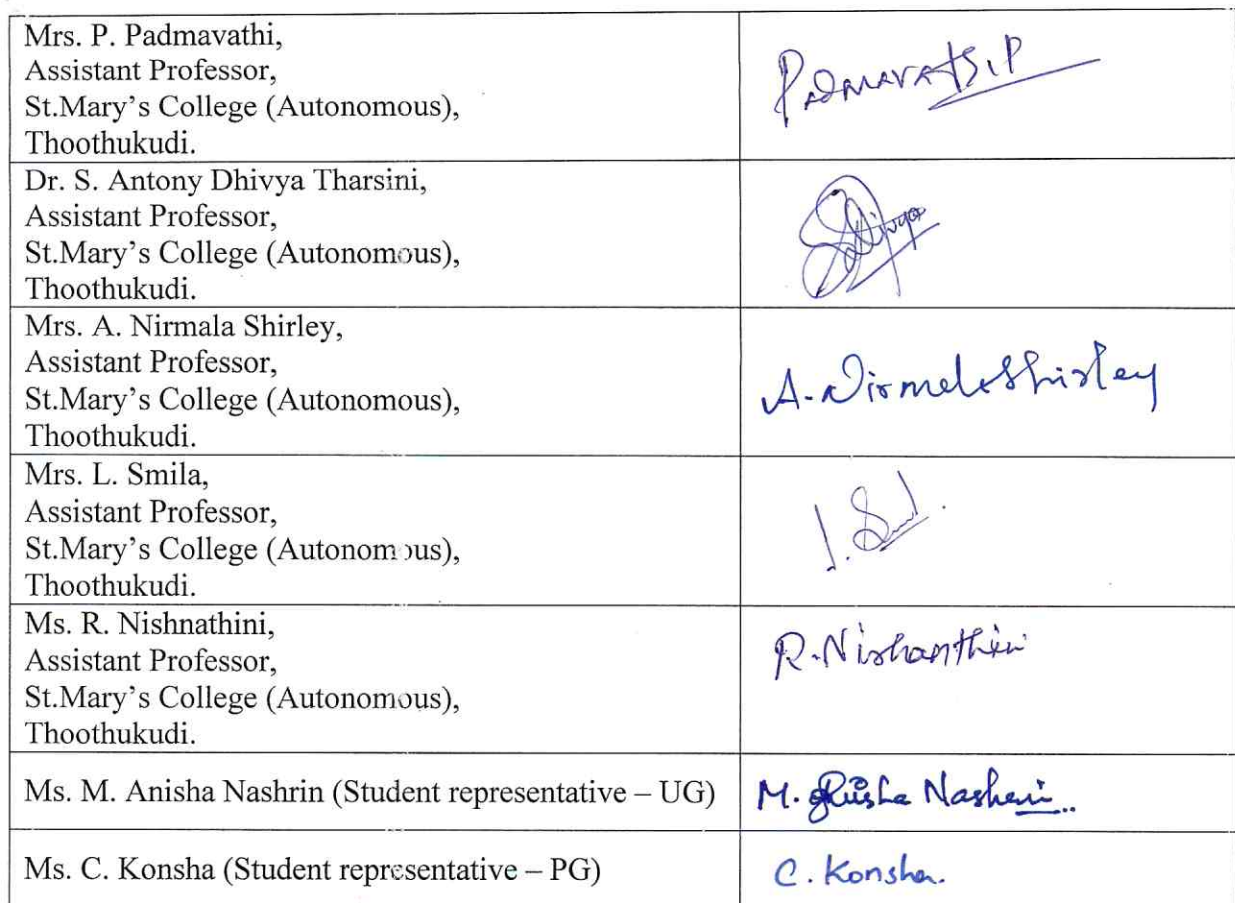 Mrs. P. Padmavathi,
Assistant Professor,
St.Mary's College (Autonomous),
Thoothukudi.
Padmavathi.P
Dr. S. Antony Dhivya Tharsini,
Assistant Professor,
St.Mary's College (Autonomous),
Thoothukudi.
Mrs. A. Nirmala Shirley,
Assistant Professor,
St.Mary's College (Autonomous),
Thoothukudi.
A. Nirmala Shirley
Mrs. L. Smila,
Assistant Professor,
St.Mary's College (Autonomous),
Thoothukudi.
Ms. R. Nishnathini,
Assistant Professor,
St.Mary's College (Autonomous),
Thoothukudi.
R. Nishanthini
Ms. M. Anisha Nashrin (Student representative – UG)
M. Nashrin
Ms. C. Konsha (Student representative – PG)
C. Konsha.